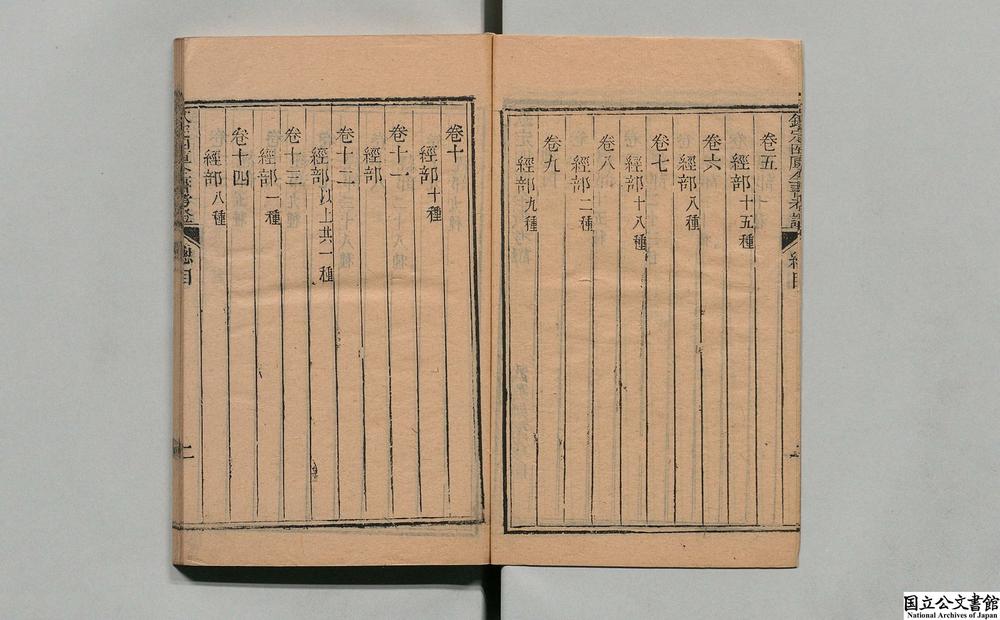 欽定四庫全書考證
總目
卷五
經部十五種
卷六
經部八種
卷七
經部十八種
卷八
經部二種
卷九
經部九種
卷十
經部十種
卷十一
經部
卷十二
經部以上共一種
卷十三
經部一種
卷十四
經部八種
欽定四庫全書考證
總目
二
国立公文書館
National Archives of Japan